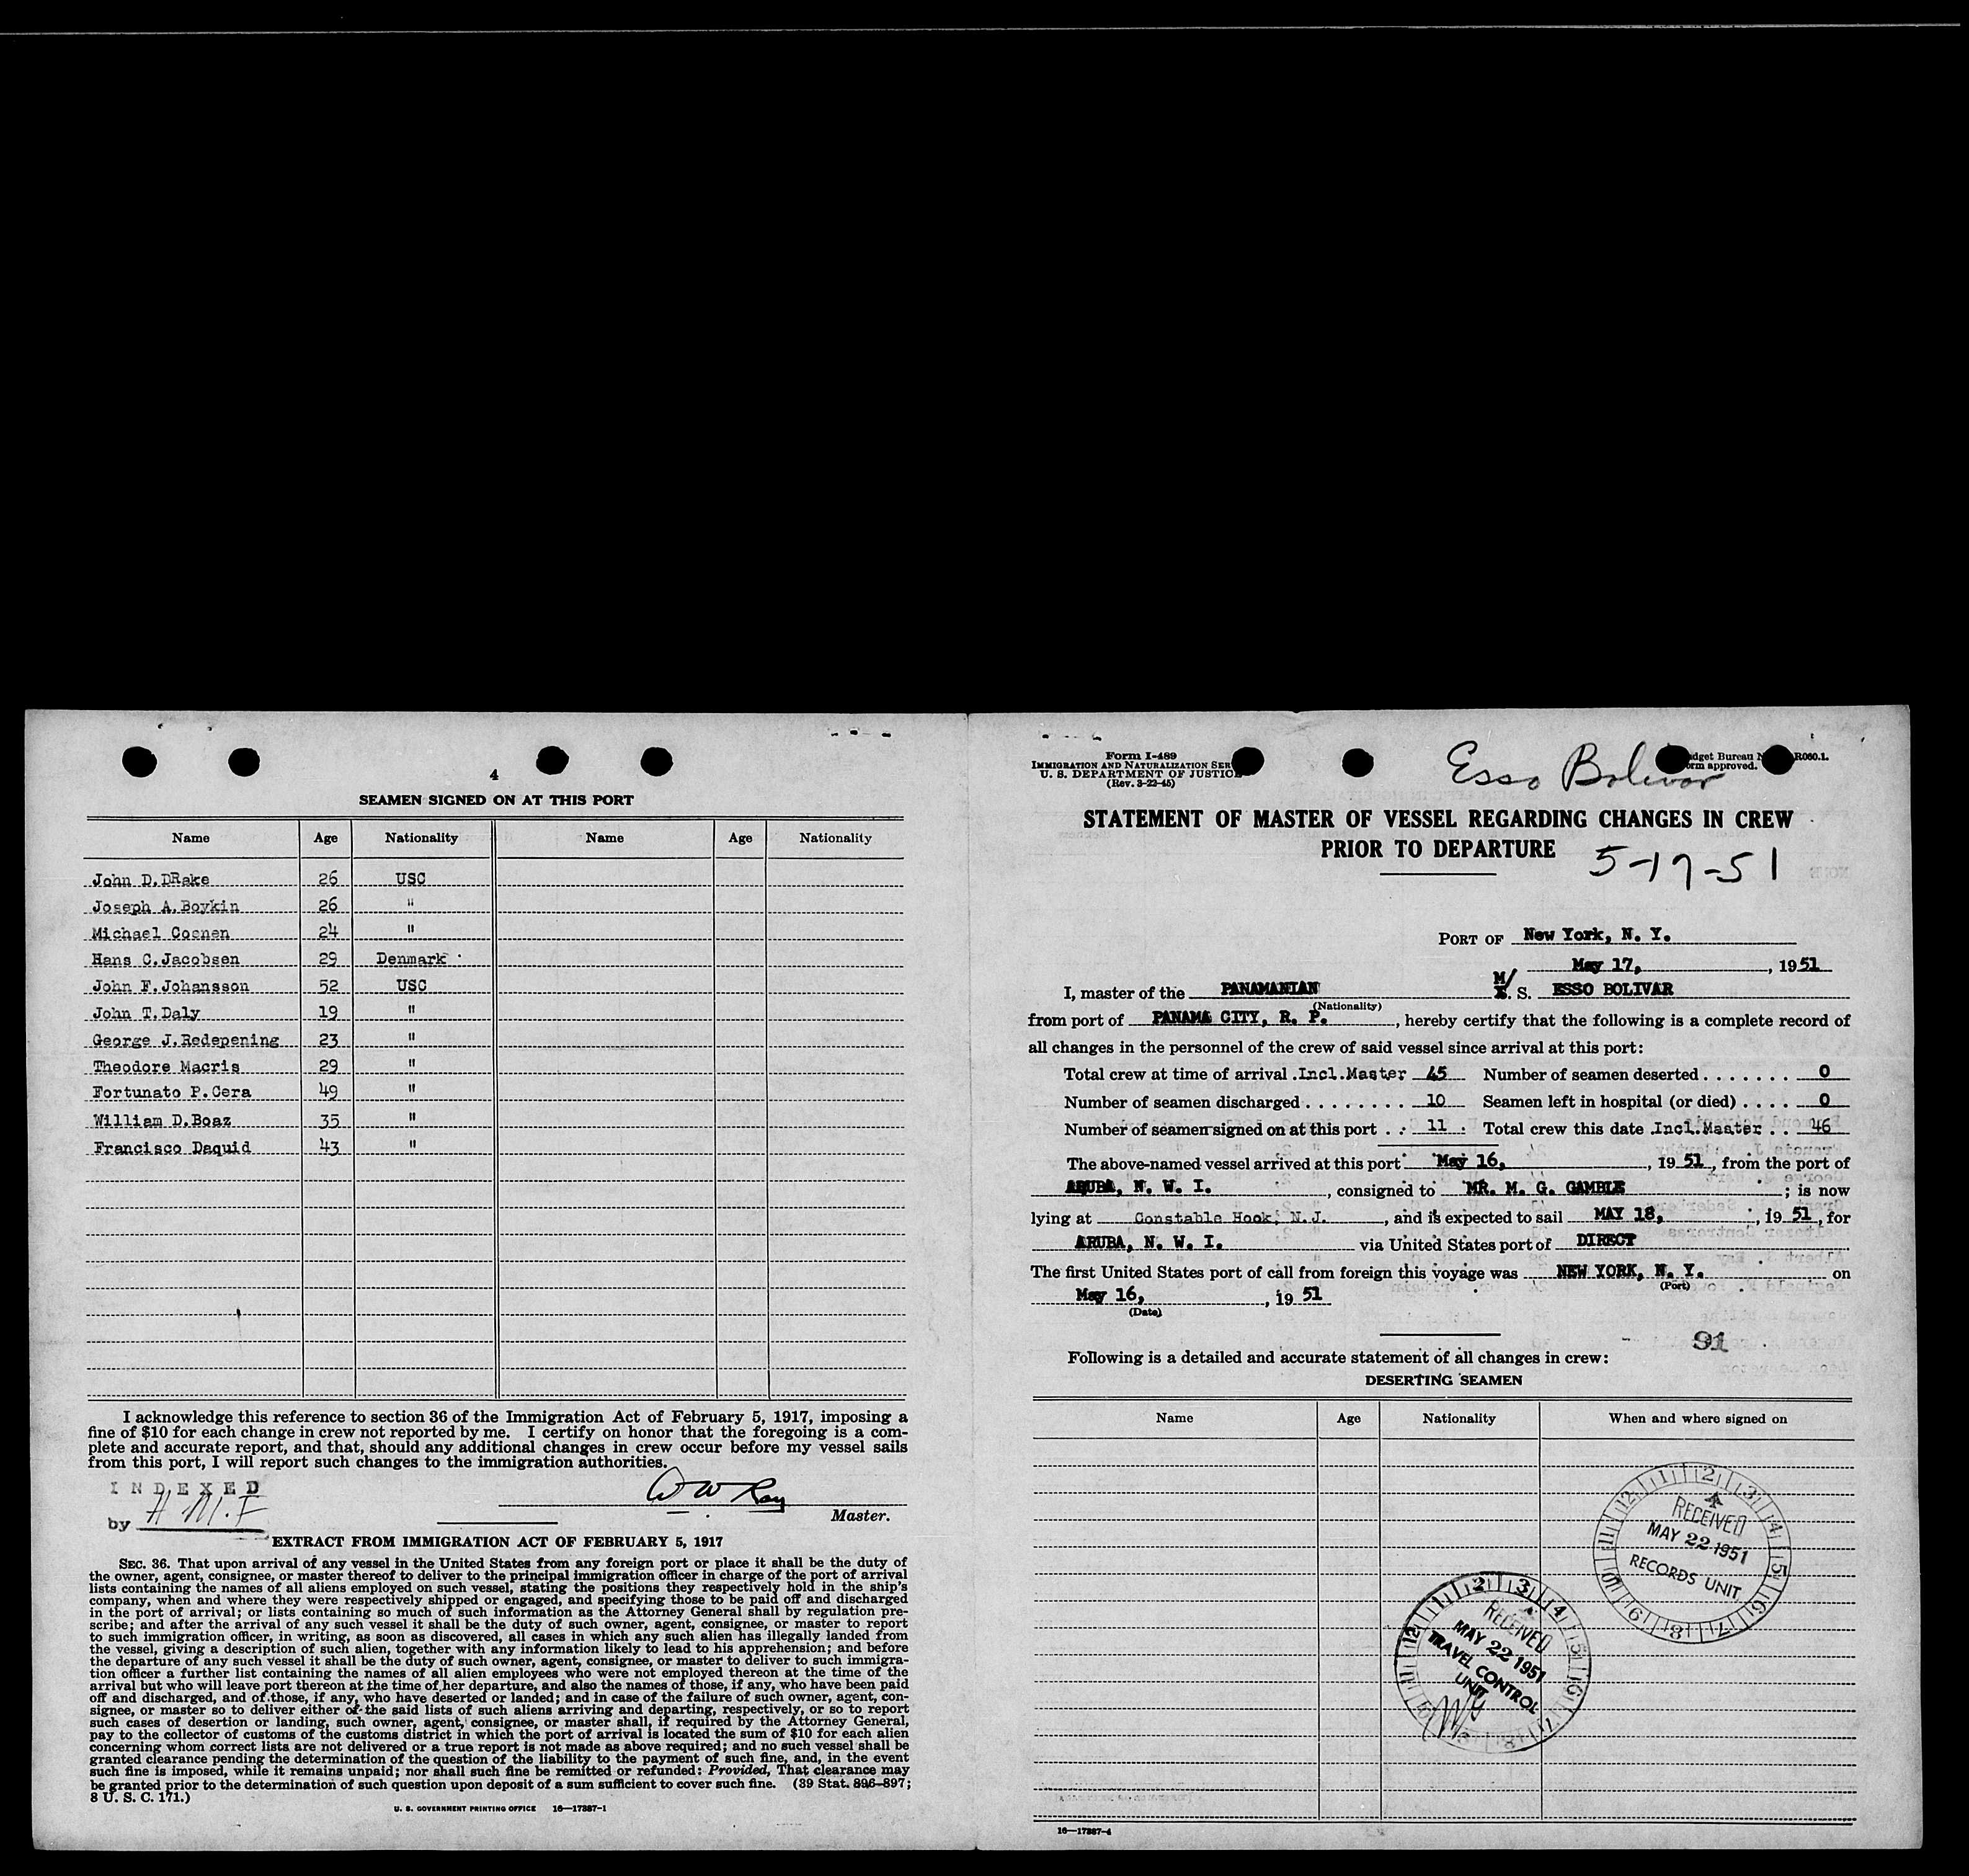 4
SEAMEN SIGNED ON AT THIS PORT
Name Age Nationality Name Age Nationality
John D.DRake 26 USC
Joseph A.Boykin 26 "
Michael Coenen 24 "
Hans C.Jacobsen 29 Denmark
John F.Johansson 52 USC
John T.Daly 19 "
George J.Redepening 23 "
Theodore Macris 29 "
Fortunato P.Cera 49 "
William D.Boaz 35 "
Francisco Daquid 43 "
I acknowledge this reference to section 36 of the Immigration Act of February 5, 1917, imposing a
fine of $10 for each change in crew not reported by me. I certify on honor that the foregoing is a com-
plete and accurate report, and that, should any additional changes in crew occur before my vessel sails
from this port, I will report such changes to the immigration authorities.
INDEXED
by H.M.F
W W Ray
Master.
EXTRACT FROM IMMIGRATION ACT OF FEBRUARY 5, 1917
SEC. 36. That upon arrival of any vessel in the United States from any foreign port or place it shall be the duty of
the owner, agent, consignee, or master thereof to deliver to the principal immigration officer in charge of the port of arrival
lists containing the names of all aliens employed on such vessel, stating the positions they respectively hold in the ship's
company, when and where they were respectively shipped or engaged, and specifying those to be paid off and discharged
in the port of arrival; or lists containing so much of such information as the Attorney General shall by regulation pre-
scribe; and after the arrival of any such vessel it shall be the duty of such owner, agent, consignee, or master to report
to such immigration officer, in writing, as soon as discovered, all cases in which any such alien has illegally landed from
the vessel, giving a description of such alien, together with any information likely to lead to his apprehension; and before
the departure of any such vessel it shall be the duty of such owner, agent, consignee, or master to deliver to such immigra-
tion officer a further list containing the names of all alien employees who were not employed thereon at the time of the
arrival but who will leave port thereon at the time of her departure, and also the names of those, if any, who have been paid
off and discharged, and of those, if any, who have deserted or landed; and in case of the failure of such owner, agent, con-
signee, or master so to deliver either of the said lists of such aliens arriving and departing, respectively, or so to report
such cases of desertion or landing, such owner, agent, consignee, or master shall, if required by the Attorney General,
pay to the collector of customs of the customs district in which the port of arrival is located the sum of $10 for each alien
concerning whom correct lists are not delivered or a true report is not made as above required; and no such vessel shall be
granted clearance pending the determination of the question of the liability to the payment of such fine, and, in the event
such fine is imposed, while it remains unpaid; nor shall such fine be remitted or refunded: Provided, That clearance may
be granted prior to the determination of such question upon deposit of a sum sufficient to cover such fine. (39 Stat. 896-897;
8 U. S. C. 171.)
U. S. GOVERNMENT PRINTING OFFICE 16—17387-1
Form I-489
IMMIGRATION AND NATURALIZATION SER
U. S. DEPARTMENT OF JUSTICE
(Rev. 3-22-45)
Esso Bolivar
dget Bureau N R060.1.
rm approved.
STATEMENT OF MASTER OF VESSEL REGARDING CHANGES IN CREW
PRIOR TO DEPARTURE
5-17-51
PORT OF New York, N. Y.
May 17, , 1951
I, master of the PANAMANIAN M/ S. ESSO BOLIVAR
(Nationality)
from port of PANAMA CITY, R. P. , hereby certify that the following is a complete record of
all changes in the personnel of the crew of said vessel since arrival at this port:
Total crew at time of arrival .Incl.Master 45 Number of seamen deserted . . . . . . . 0
Number of seamen discharged . . . . . . . . 10 Seamen left in hospital (or died) . . . . 0
Number of seamen signed on at this port . . 11 Total crew this date .Incl.Master . . 46
The above-named vessel arrived at this port May 16, , 19 51 , from the port of
ARUBA, N. W. I. , consigned to MR. M. G. GAMBLE ; is now
lying at Constable Hook, N.J. , and is expected to sail MAY 18, , 19 51 , for
ARUBA, N. W. I. via United States port of DIRECT
The first United States port of call from foreign this voyage was NEW YORK, N. Y. on
(Port)
May 16, , 19 51
(Date)
91
Following is a detailed and accurate statement of all changes in crew:
DESERTING SEAMEN
Name Age Nationality When and where signed on
RECEIVED
MAY 22 1951
RECORDS UNIT
RECEIVED
MAY 22 1951
TRAVEL CONTROL
UNIT
16—17387-4